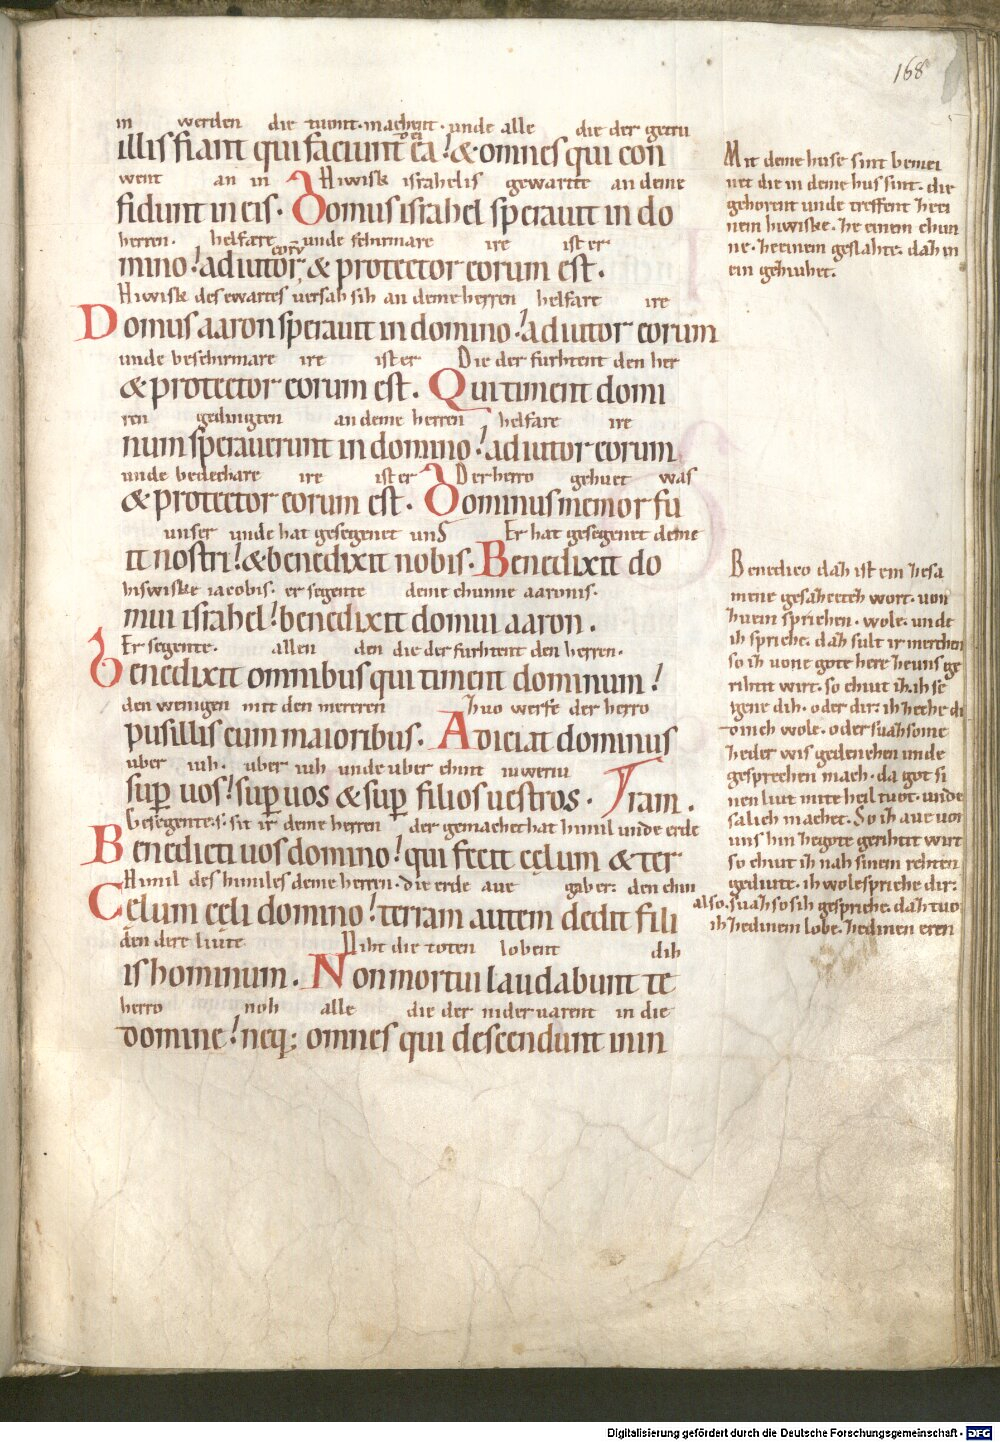 168
in werden die tuont. machent. unde alle die der getru
illis fiant qui faciunt ea! & omnes qui con
went an in Hiwisk israhelis gewartte an deme
fidunt in eis. Domus israhel sperauit in do
herren. helfare unde schirmare ire ist er
mino! adiutor eorū & protector eorum est.
Hiwisk des ewartes versah sih an deme herren helfare ire
Domus aaron sperauit in domino! adiutor eorum
unde beschirmare ire ist er Die der furhtent den her
& protector eorum est. Qui timent domi
ren gedingten an deme herren helfare ire
num sperauerunt in domino! adiutor eorum
unde bedechare ire ist er Der herro gehuet was
& protector eorum est. Dominus memor fu
unser unde hat gesegenet uns Er hat gesegenet deme
it nostri! & benedixit nobis. Benedixit do
hiswiske iacobis. er segente deme chunne aaronis.
mui israhel! benedixit domui aaron.
Er segente. allen den die der furhtent den herren.
Benedixit omnibus qui timent dominum!
den wenigen mit den mereren Zuo werfe der herro
pusillis cum maioribus. Adiciat dominus
uber iuh. uber iuh unde uber chint iuweriu
sup uos! sup uos & sup filios uestros.
Gesegente. s. sit ir deme herren der gemachet hat himil unde erde
Benedicti uos domino! qui fecit cęlum & ter ram.
Himil des himiles deme herren. die erde aue gab er: den chin
Celum celi domino! terram autem dedit fili
den dere liute Niht die toten lobent dih
is hominum. Non mortui laudabunt te
herro noh alle die der nider uarent in die
domine! neq; omnes qui descendunt in in
Mit deme huse sint bemei
net die in deme hus sint. die
gehorent unde treffent zeei
nem hiwiske. ze einem chun
ne. ze einem geslahte. daz in
ein gehuhet.
Benedico daz ist ein zesa
mene gesaztez wort. uon
zuein sprichen. wole. unde
ih spriche. daz sult ir merchen
so ih uone gote here ze uns ge
rihtit wirt. so chiut ih. ih se
gene dih. oder dir: ih zeche di
omich wole. oder suaz so me
zeder wis gedenchen unde
gesprechen mach. da got si
nen liut mite heil tuot. unde
salich machet. So ih aue uon
uns hin ze gote gerihtit wirt
so chiut ih nah sinem rehten
gediute. ih wole spriche dir:
also. suaz so ih gespriche. daz tuo
ih ze dinem lobe. ze dinen eren
Digitalisierung gefördert durch die Deutsche Forschungsgemeinschaft - DFG